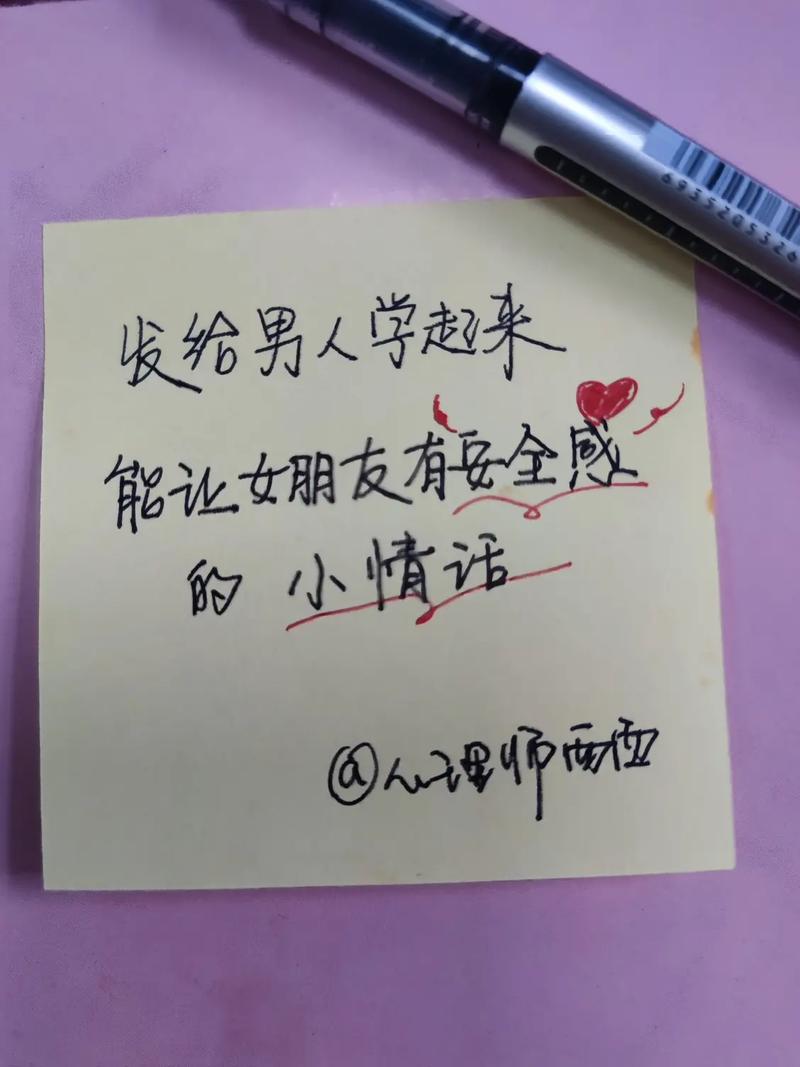 6935205326
发给男人学起来
能让女朋友有安全感
的小情话
@心理师西西